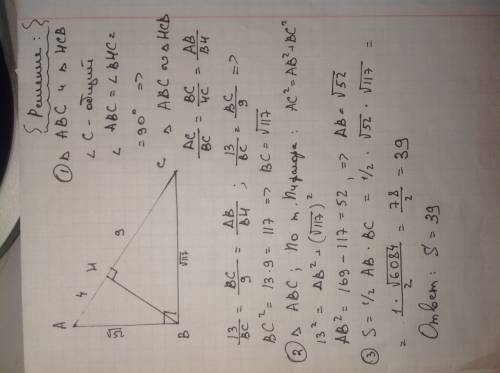 { Решение: }
① Δ ABC и Δ HCB
∠ C - общий
∠ ABC = ∠ BHC =
= 90° =>
Δ ABC ∾ Δ HCB
AC/BC = BC/HC = AB/BH
A
4
H
9
C
√52
B
√117
13/BC = BC/9 = AB/BH ; 13/BC = BC/9 =>
BC² = 13·9 = 117 => BC = √117
② Δ ABC; По т. Пифагора: AC² = AB² + BC²
13² = AB² + (√117)²
AB² = 169 - 117 = 52, => AB = √52
③ S = 1/2 AB · BC = 1/2 · √52 · √117 =
= 1·√6084/2 = 78/2 = 39
Ответ: S = 39